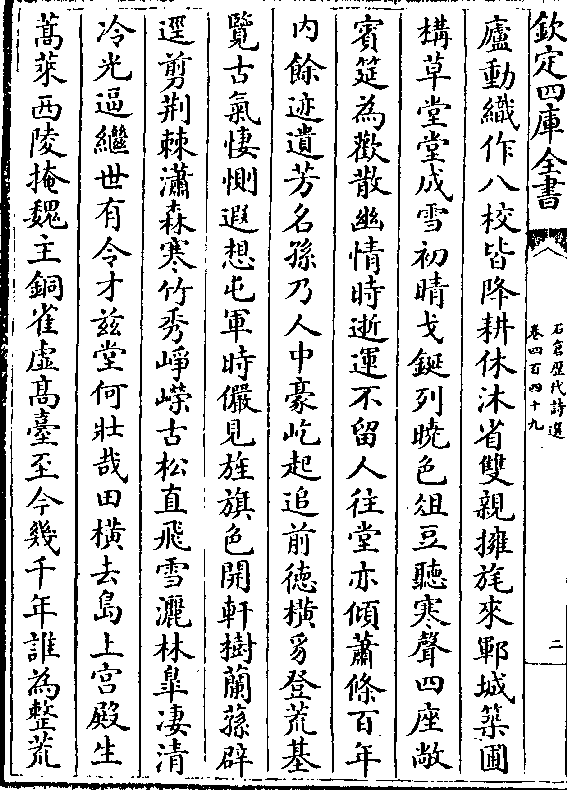 欽定四庫全書
石倉歷代詩選
卷四百四十九
二
廬動織作八校皆降耕休沐省雙親擁旄來鄆城築圃
構草堂堂成雪初晴戈鋋列曉色俎豆聽寒聲四座敞
賓筵為歡散幽情時逝運不留人往堂亦傾蕭條百年
内餘迹遺芳名孫乃人中豪屹起追前德横舄登荒基
覽古氣悽惻遐想屯軍時儼見旌旗色開軒樹蘭蓀辟
逕剪荆棘瀟森寒竹秀崢嶸古松直飛雪灑林臯凄清
冷光逼繼世有令才兹堂何壯哉田横去島上宫殿生
蒿萊西陵掩魏主銅雀虚髙臺至今幾千年誰為整荒